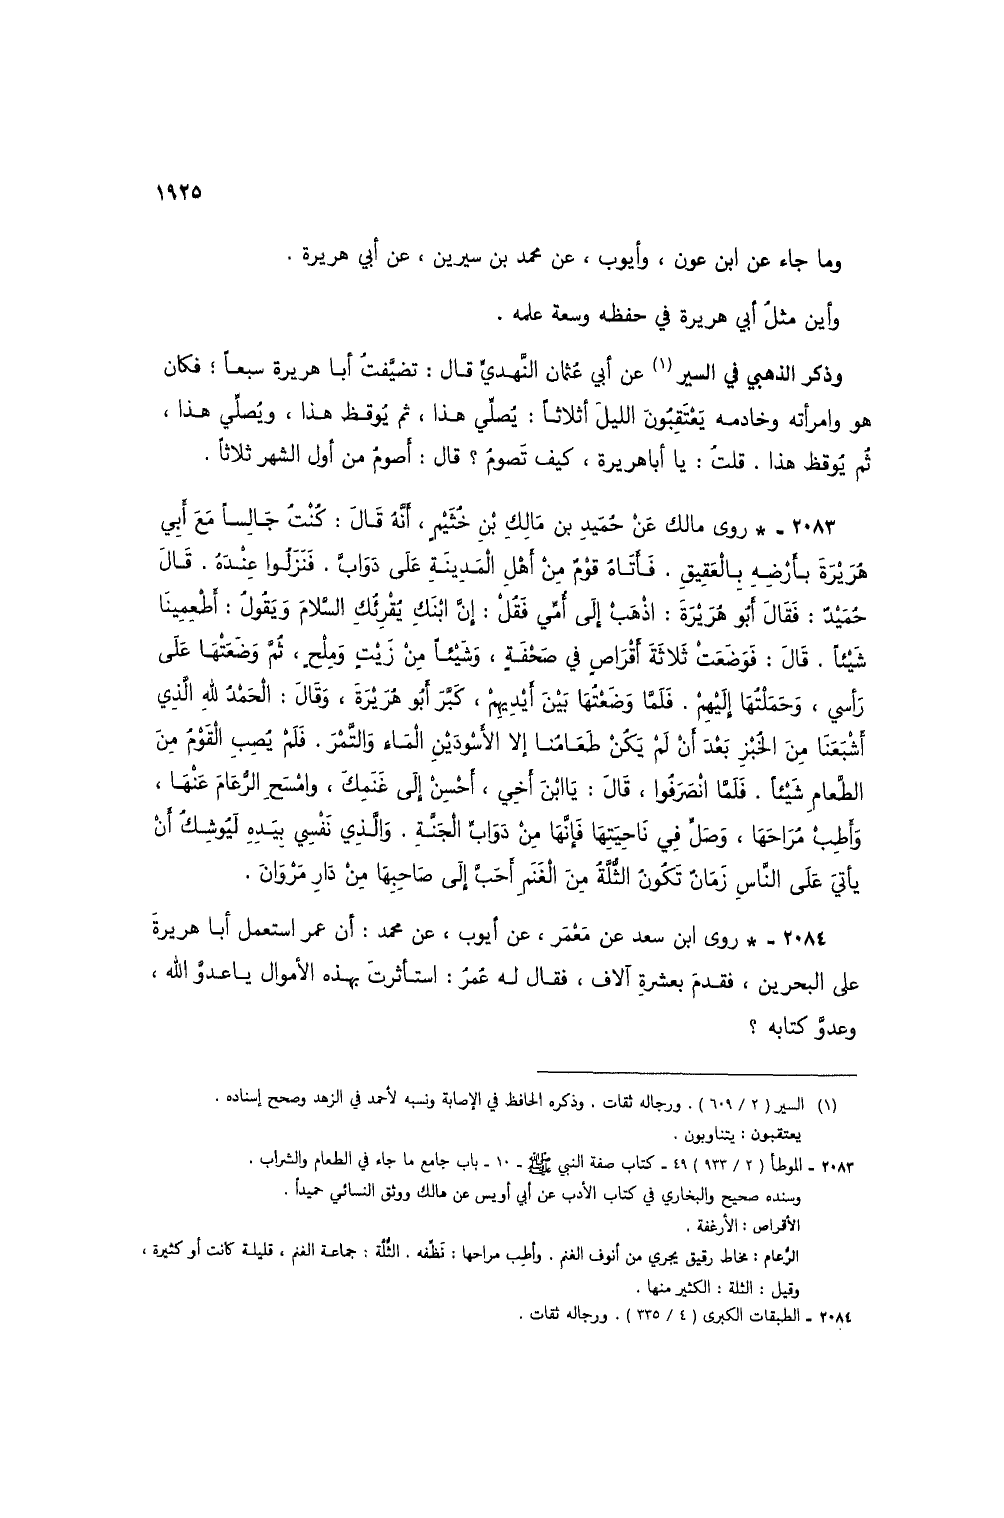 ١٩٢٥
وما جاء عن ابن عون ، وأيوب ، عن محمد بن سيرين ، عن أبي هريرة .
وأين مثلُ أبي هريرة في حفظه وسعة علمه .
وذكر الذهبي في السير (١) عن أبي عثمان النَّهديِّ قال : تضيَّفتُ أبا هريرة سبعاً ؛ فكان
هو وامرأته وخادمه يَعْتَقِبُونَ الليلَ أثلاثاً : يُصلِّي هذا ، ثم يُوقظ هذا ، ويُصلِّي هذا ،
ثُم يُوقظ هذا . قلتُ : يا أباهريرة ، كيف تَصومُ ؟ قال : أَصومُ من أول الشهر ثلاثاً .
٢٠٨٣ - * روى مالك عَنْ حُمَيدِ بن مَالِكِ بْنِ خُثَيْمٍ ، أَنَّهُ قَالَ : كُنْتُ جَالِساً مَعَ أَبِي
هُرَيْرَةَ بِأَرْضِهِ بِالْعَقِيقِ . فَأَتَاهُ قَوْمٌ مِنْ أَهْلِ الْمَدِينَةِ عَلَى دَوَابَّ . فَنَزَلُوا عِنْدَهُ . قَالَ
حُمَيْدٌ : فَقَالَ أَبُو هُرَيْرَةَ : اذْهَبْ إِلَى أُمِّي فَقُلْ : إِنَّ ابْنَكِ يُقْرِئُكِ السَّلامَ وَيَقُولُ : أَطْعِمِينَا
شَيْئاً . قَالَ : فَوَضَعَتْ ثَلاثَةَ أَقْرَاصٍ في صَحْفَةٍ ، وَشَيْئاً مِنْ زَيْتٍ وَمِلْحٍ ، ثُمَّ وَضَعَتْهَا عَلَى
رَأسي ، وَحَمَلْتُهَا إِلَيْهِمْ . فَلَمَّا وَضَعْتُهَا بَيْنَ أَيْدِيهِمْ ، كَبَّرَ أَبُو هُرَيْرَةَ ، وَقَالَ : الْحَمْدُ للهِ الَّذِي
أَشْبَعَنَا مِنَ الخُبْزِ بَعْدَ أَنْ لَمْ يَكُنْ طَعَامُنا إلا الأَسْودَيْنِ الْمَاء وَالتَّمْرَ . فَلَمْ يُصِبِ الْقَوْمُ مِنَ
الطَّعامِ شَيْئاً . فَلَمَّا انْصَرَفُوا ، قَالَ : يَاابْنَ أَخِي ، أَحْسِنْ إِلَى غَنَمِكَ ، وامْسَحِ الرُّعَامَ عَنْهَا ،
وَأَطِبْ مُرَاحَهَا ، وَصَلِّ فِي نَاحِيَتِهَا فَإِنَّهَا مِنْ دَوَابِّ الْجَنَّةِ . وَالَّذِي نَفْسِي بِيَدِهِ لَيُوشِكُ أَنْ
يأتيَ عَلَى النَّاسِ زَمَانٌ تَكُونُ الثُّلَّةُ مِنَ الْغَنَمِ أَحَبَّ إِلَى صَاحِبِهَا مِنْ دَارِ مَرْوَانَ .
٢٠٨٤ - * روى ابن سعد عن مَعْمَر ، عن أيوب ، عن محمد : أن عمر استعمل أبا هريرةَ
على البحرين ، فقدمَ بعشرةِ آلاف ، فقال له عُمرُ : استأثرتَ بهذه الأموال ياعدوَّ الله ،
وعدوَّ كتابه ؟
(١) السير ( ٢ / ٦٠٩ ) . ورجاله ثقات . وذكره الحافظ في الإصابة ونسبه لأحمد في الزهد وصحح إسناده .
يعتقبون : يتناوبون .
٢٠٨٣ - الموطأ ( ٢ / ٩٣٣ ) ٤٩ - كتاب صفة النبي ﷺ - ١٠ - باب جامع ما جاء في الطعام والشراب .
وسنده صحيح والبخاري في كتاب الأدب عن أبي أويس عن مالك ووثق النسائي حميداً .
الأقراص : الأرغفة .
الرُّعام : مخاط رقيق يجري من أنوف الغنم . وأطِب مراحها : نَظِّفه . الثُلَّة : جماعة الغنم ، قليلة كانت أو كثيرة ،
وقيل : الثلة : الكثير منها .
٢٠٨٤ - الطبقات الكبرى ( ٤ / ٣٣٥ ) . ورجاله ثقات .